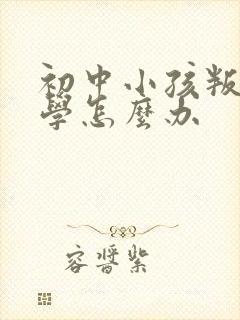 初中小孩叛
學怎麼办
容晋紫